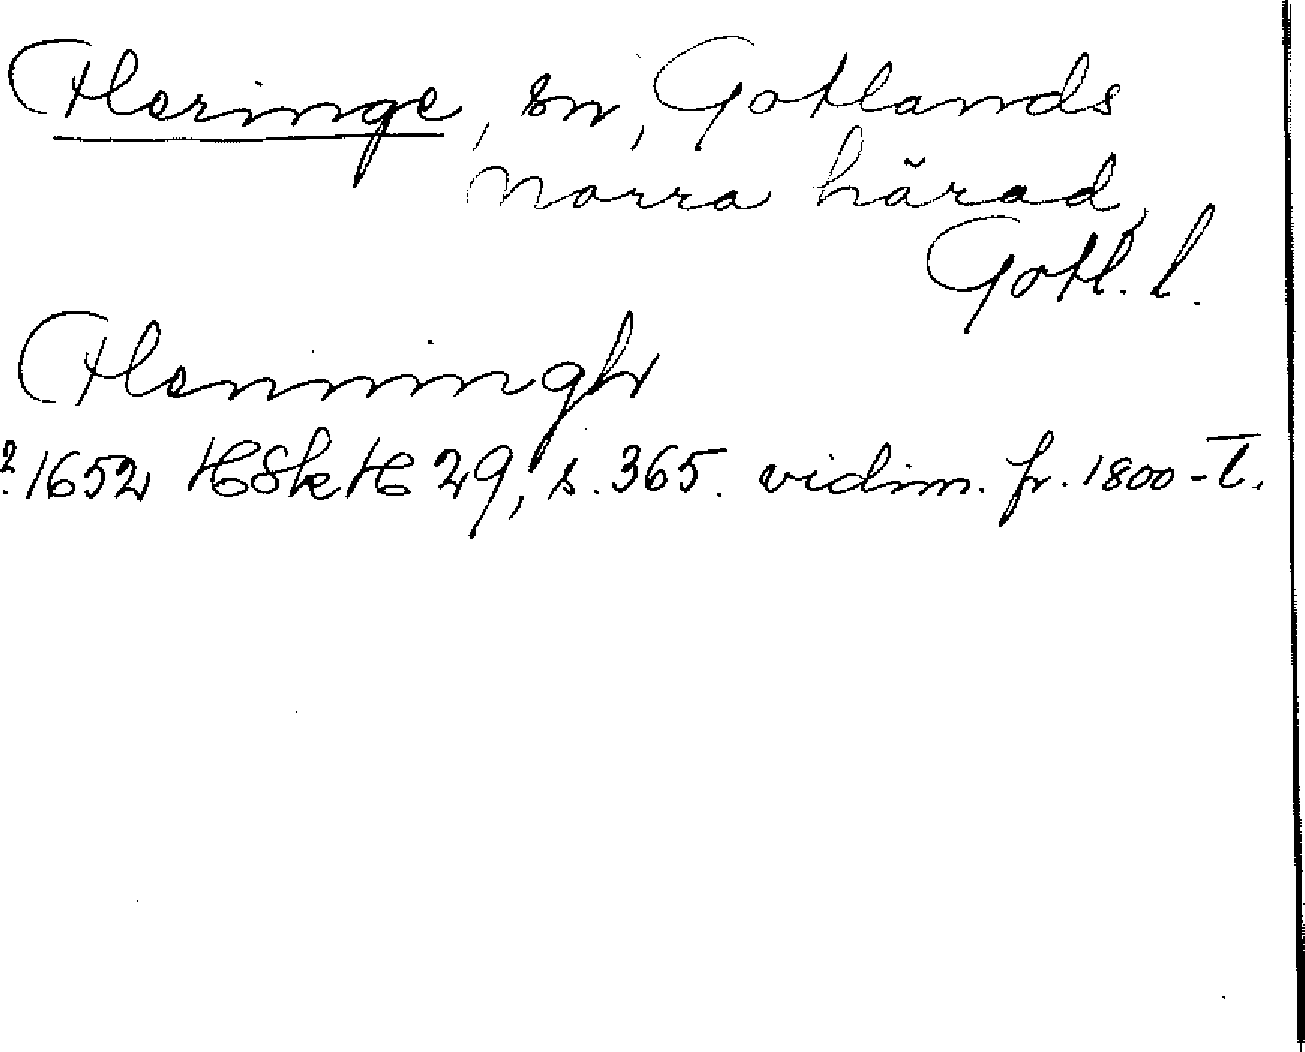 Heringe, sn, Gotlands
norra härad,
Gotl. l.
Henningh
? 1652 HSkH 29, s. 365. vidim. fr. 1800-t.